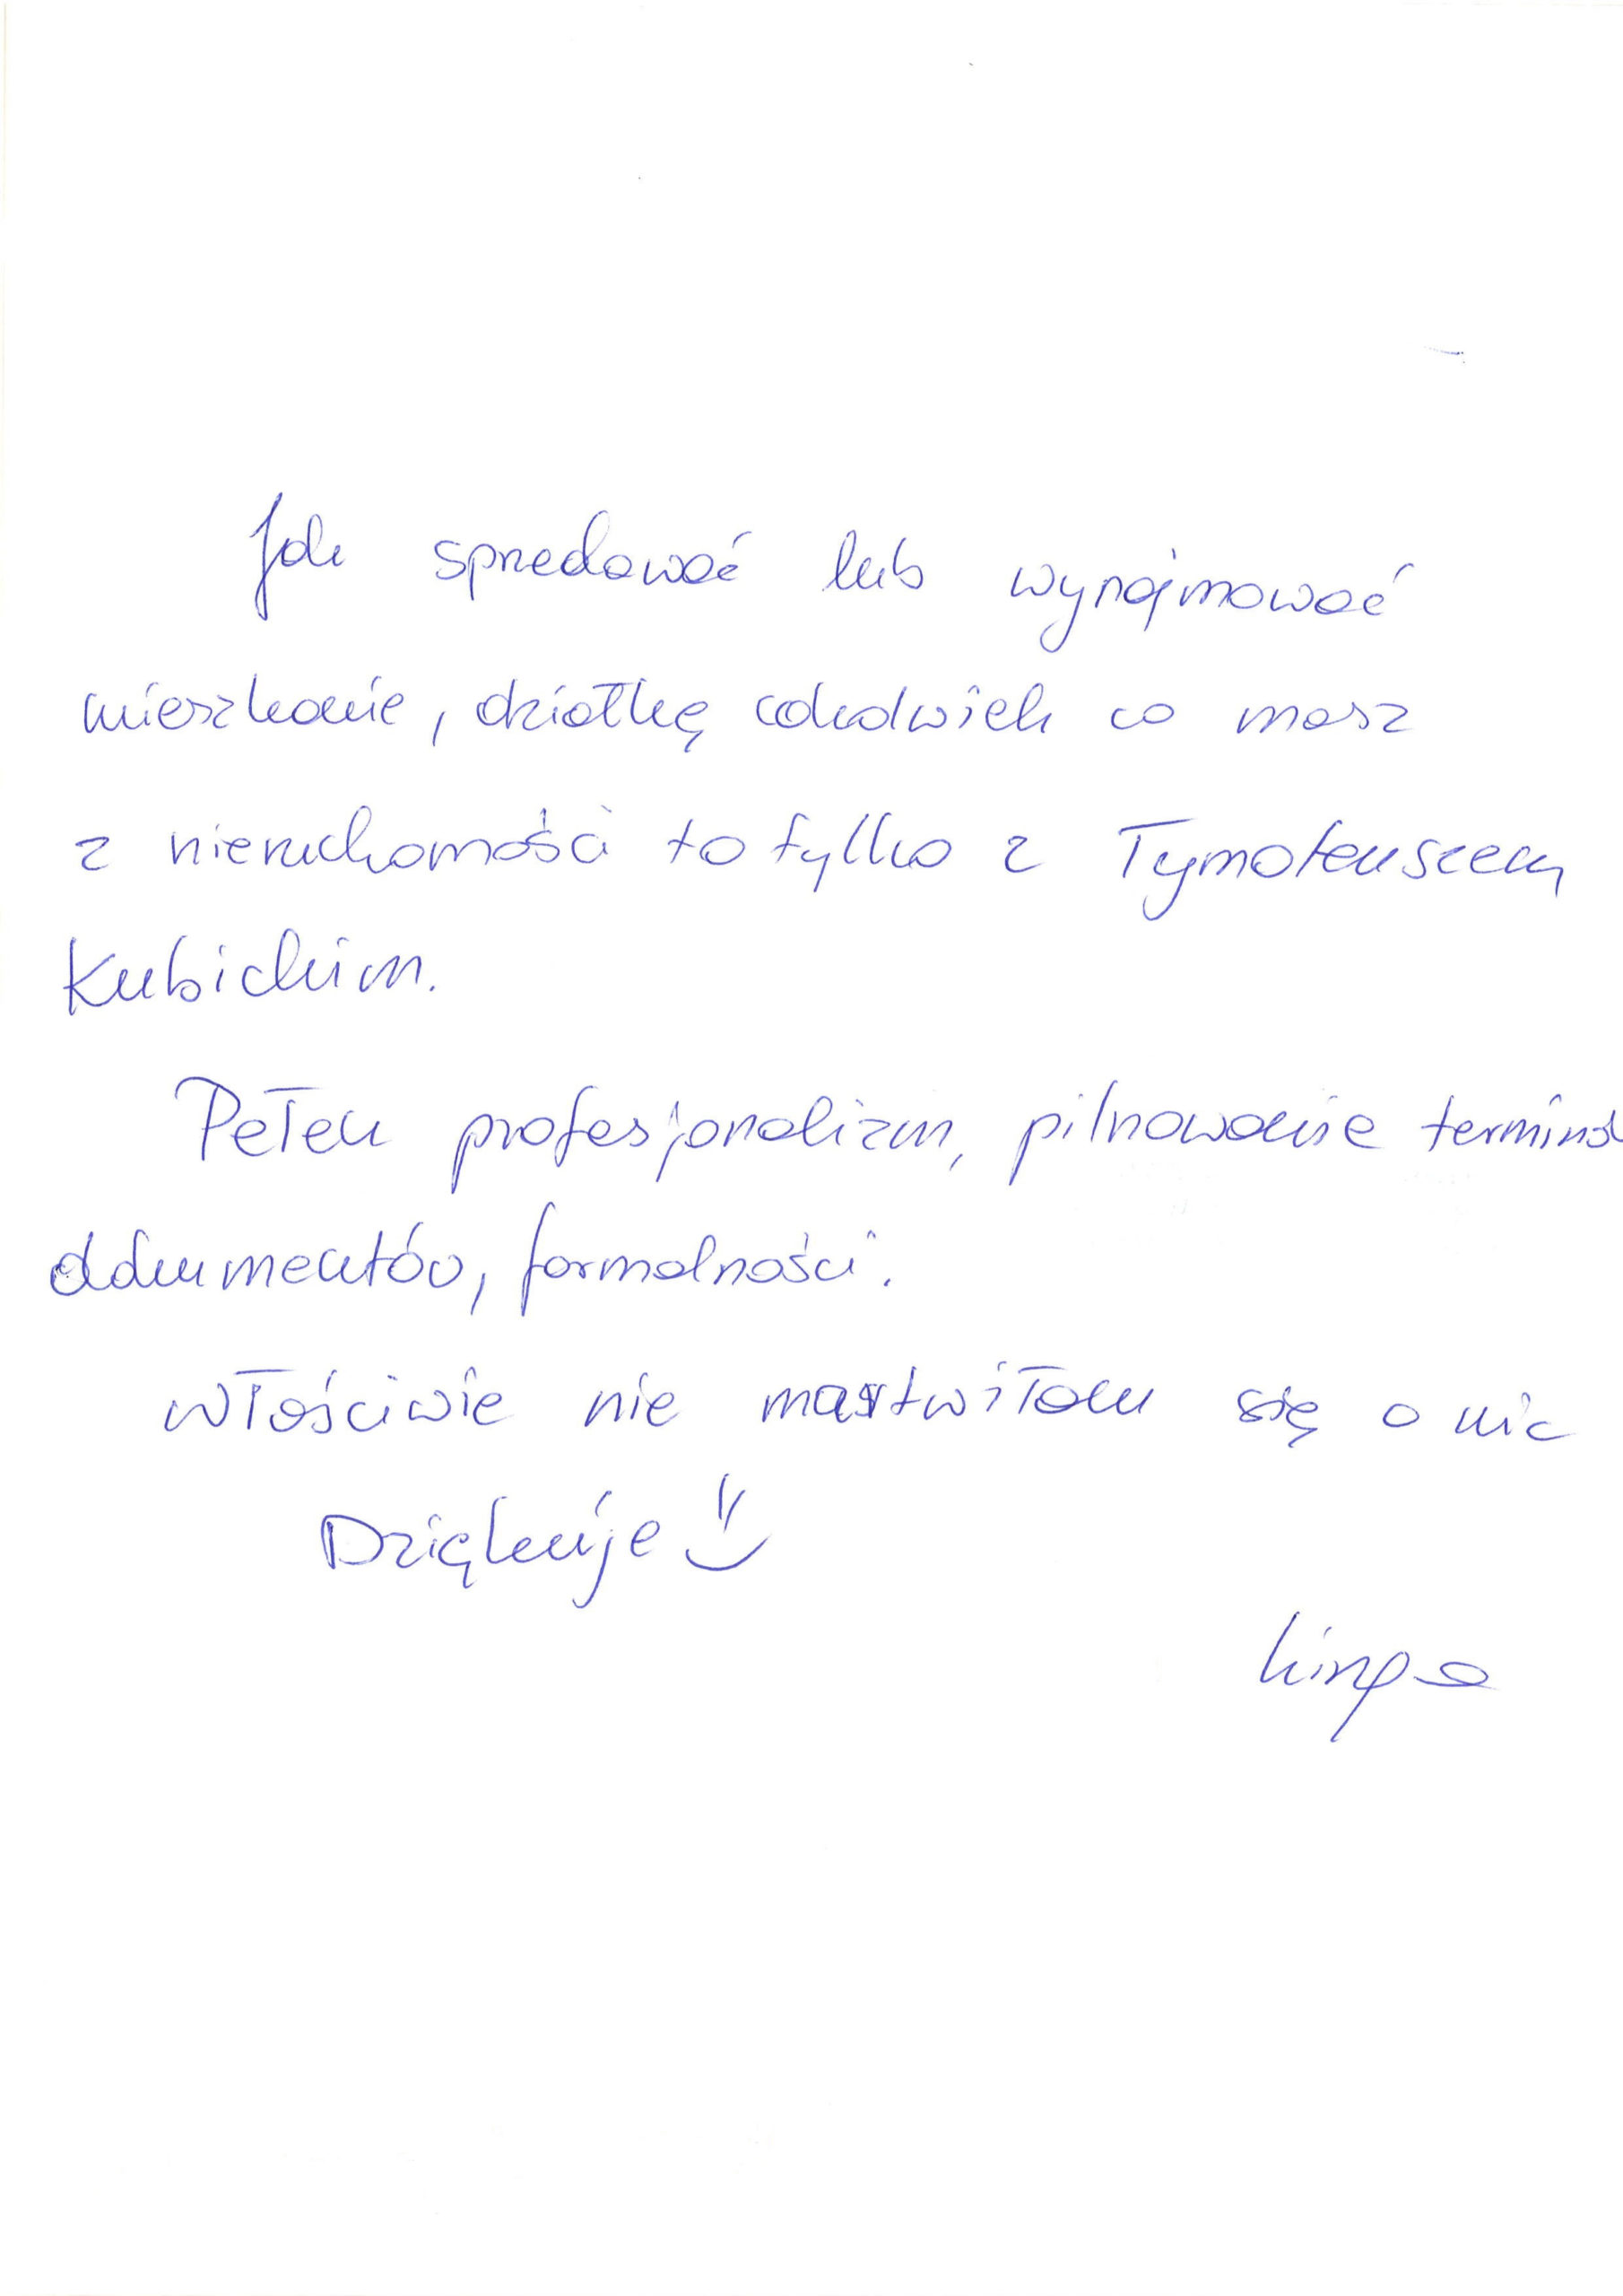 Jak sprzedawać lub wynajmować
mieszkanie, działkę cokolwiek co masz
z nieruchomości to tylko z Tymoteuszem
Kubickim.
Pełen profesjonalizm, pilnowanie terminó
dokumentów, formalności.
właściwie nie martwiłam się o nic
Dziękuję
Kinga